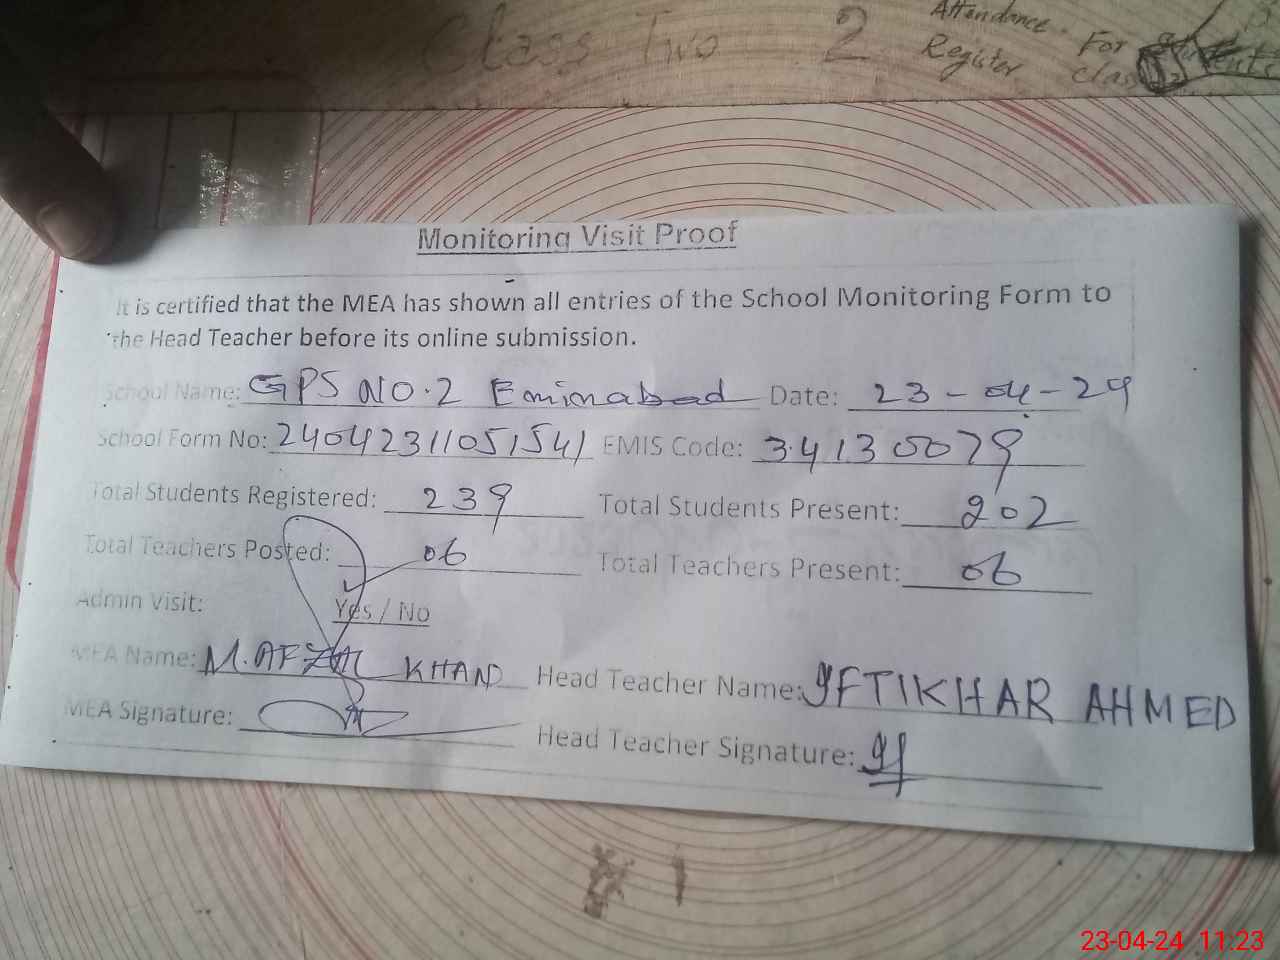 Class Two 2
Attendance
Register For Students
class 2
Monitoring Visit Proof
It is certified that the MEA has shown all entries of the School Monitoring Form to
the Head Teacher before its online submission.
School Name: GPS NO.2 Eminabad Date: 23-04-24
School Form No: 24042311051541 EMIS Code: 34130079
Total Students Registered: 239 Total Students Present: 202
Total Teachers Posted: 06 Total Teachers Present: 06
Admin Visit: Yes / No
MEA Name: M. AFZAL KHAN Head Teacher Name: IFTIKHAR AHMED
MEA Signature: Head Teacher Signature:
23-04-24 11:23